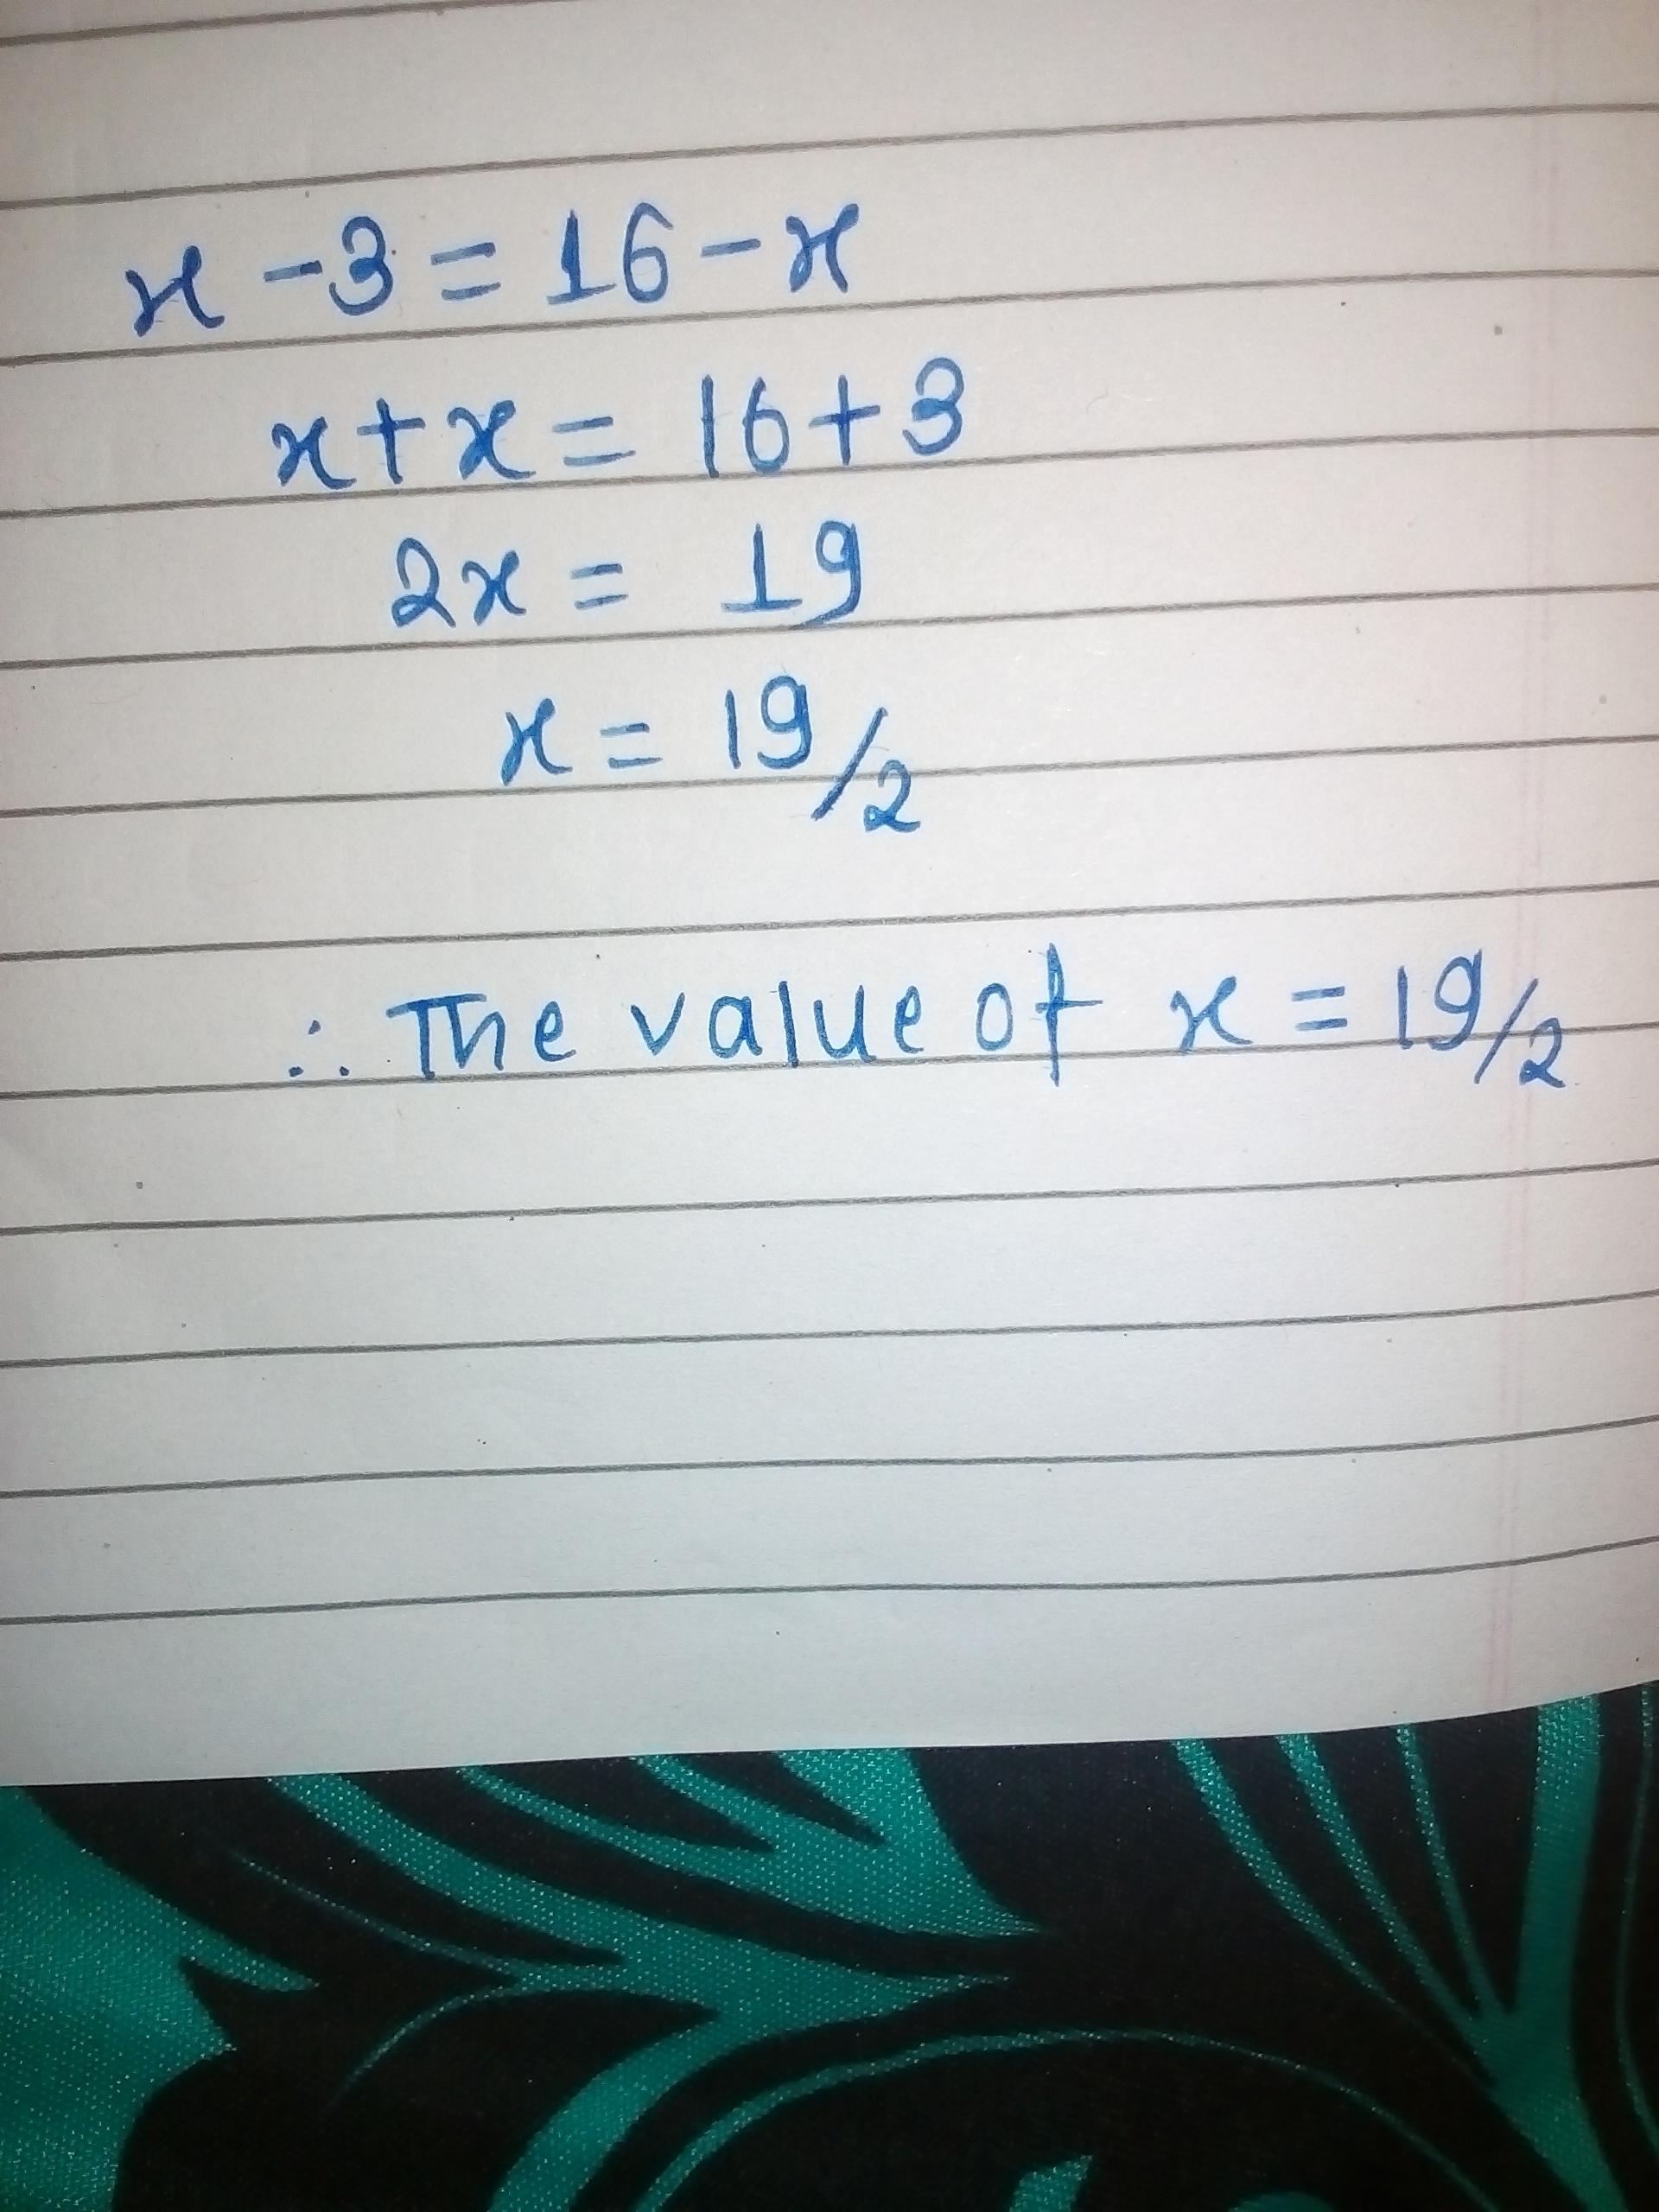 x - 3 = 16 - x
x + x = 16 + 3
2x = 19
x = 19/2
∴ The value of x = 19/2